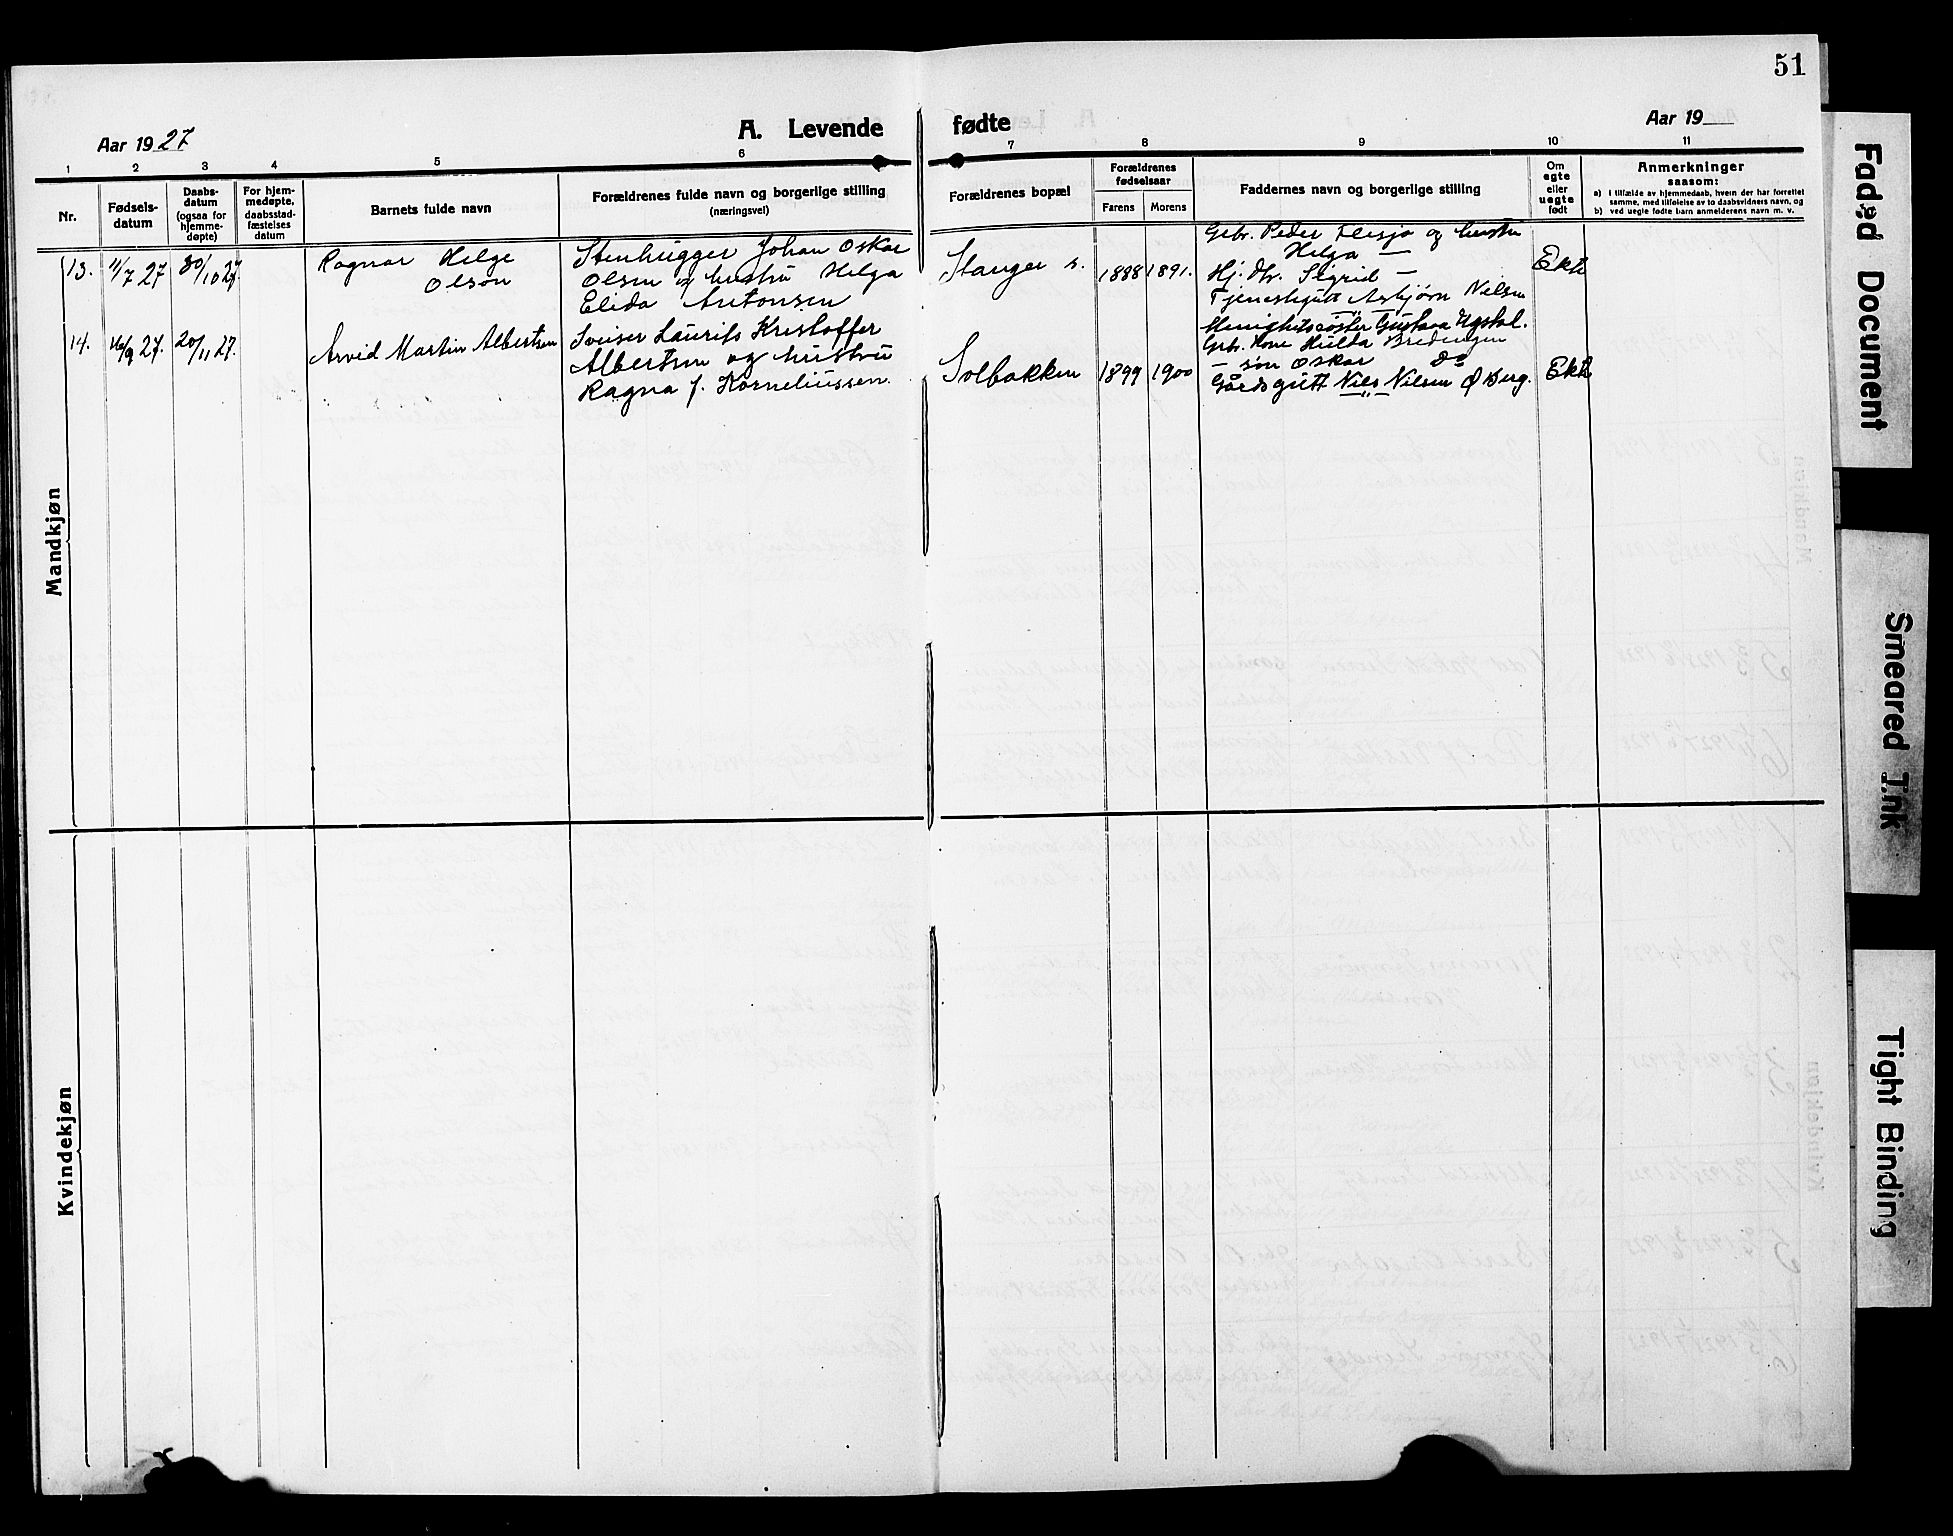 51
Aar 1927
A. Levende fødte
Aar 19
1 2 3 4 5 6 7 8 9 10 11
Nr.
Fødsels-
datum
Daabs-
datum
(ogsaa for
hjemme-
døpte)
For hjem-
medøpte,
daabsstad-
fæstelses
datum
Barnets fulde navn
Forældrenes fulde navn og borgerlige stilling
(næringsvei)
Forældrenes bopæl
Forældrenes
fødselsaar
Farens Morens
Faddernes navn og borgerlige stilling
Om
egte
eller
uegte
født
Anmerkninger
saasom:
a) i tilfælde av hjemmedaab, hvem der har forrettet
samme, med tilføielse av to daabsvidners navn, og
b) ved uegte fødte barn anmelderens navn m. v.
Mandkjøn
13. 11/7 27 30/10 27
Ragnar Helge
Olson
Stenhugger Johan Oskar
Olsen og hustru Helga
Elida Antonsen
Stanger
1888 1891.
Gbr. Peder Flesjø og hustru
Helga —
Hj. dtr. Sigrid —
Tjenestgutt Asbjørn Nilsen
Ekte
14. 16/9 27. 20/11 27.
Arvid Martin Albertsen
Sveiser Laurits Kristoffer
Albertsen og hustru
Ragna f. Korneliussen.
Solbakken
1899 1900
Menighetssøster Gustava
Gbr. Kone Hulda
— søn Oskar Do
Gårdsgutt Nils Nilsen Ø Berg.
— " —
Ekte
Kvindekjøn
Faded Document
Smeared Ink
Tight Binding